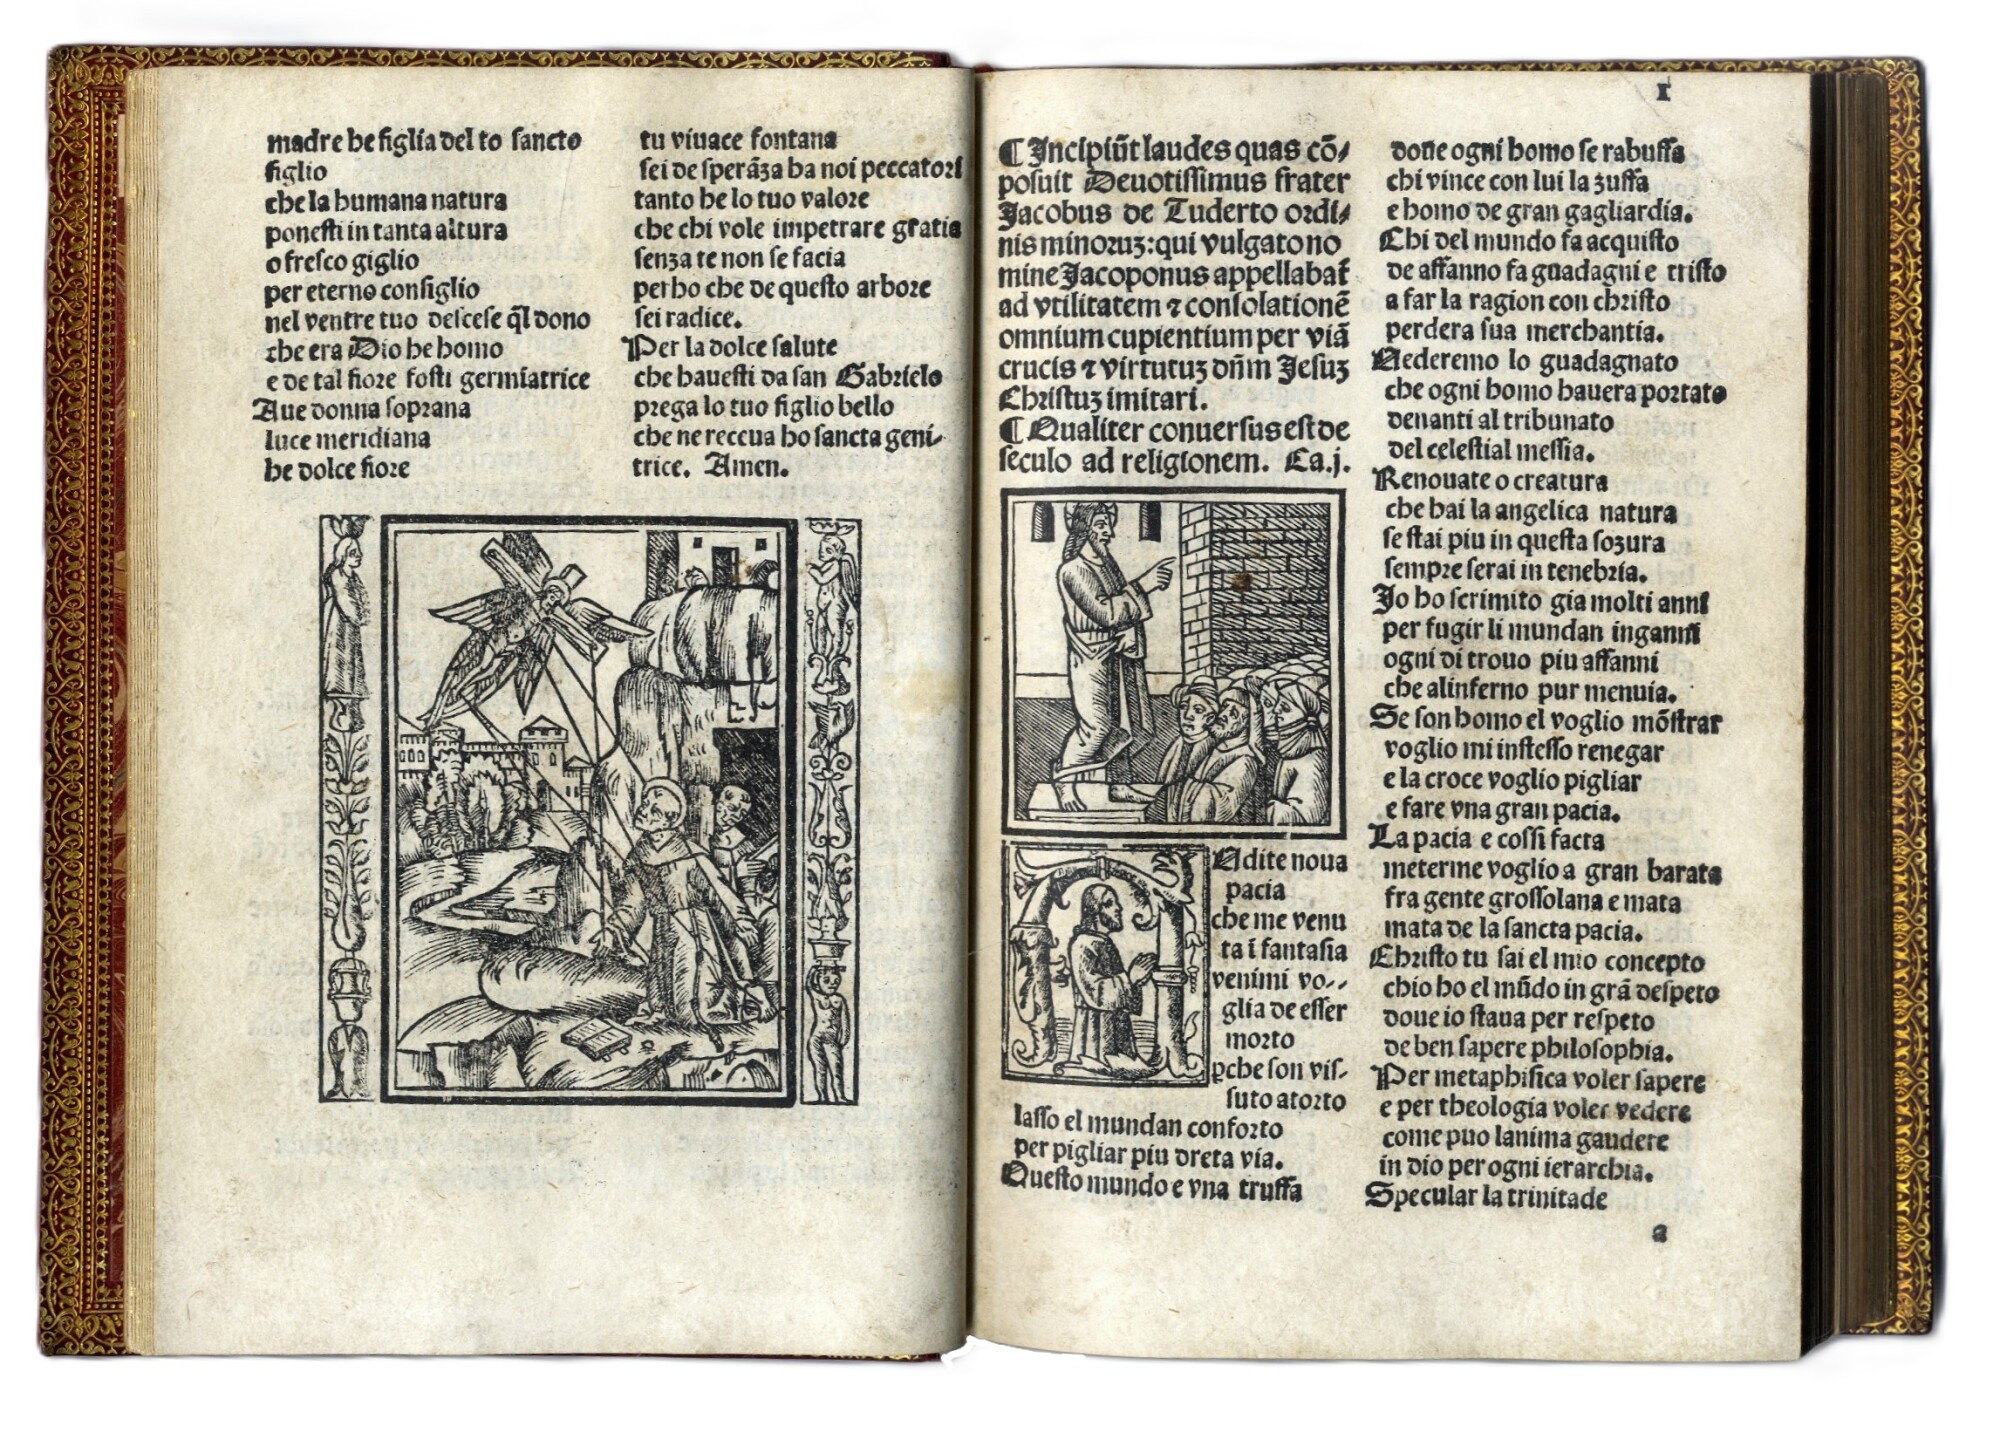 madre he figlia del to sancto
figlio
che la humana natura
ponesti in tanta altura
o fresco giglio
per eterno consiglio
nel ventre tuo descese q̃l dono
che era Dio he homo
e de tal fiore fosti germiatrice
Aue donna soprana
luce meridiana
he dolce fiore
tu viuace fontana
sei de sperãza ha noi peccatori
tanto he lo tuo valore
che chi vole impetrare gratia
senza te non se facia
perho che de questo arbore
sei radice.
Per la dolce salute
che hauesti da san Gabrielo
prega lo tuo figlio bello
che ne receua ho sancta geni-
trice. Amen.
1
¶ Incipiũt laudes quas cõ-
posuit Deuotissimus frater
Jacobus de Tuderto ordi-
nis minoruz: qui vulgato no
mine Jacoponus appellabat̃
ad vtilitatem ⁊ consolationẽ
omnium cupientium per viã
crucis ⁊ virtutuz dñm Jesuz
Christuz imitari.
¶ Qualiter conuersus est de
seculo ad religionem. Ca.j.
Udite noua
pacia
che me venu
ta ĩ fantasia
venimi vo-
glia de esser
morto
ꝑche son vis-
suto atorto
lasso el mundan conforto
per pigliar piu dreta via.
Questo mundo e vna truffa
doue ogni homo se rabuffa
chi vince con lui la zuffa
e homo de gran gagliardia.
Chi del mundo fa acquisto
de affanno fa guadagni e tristo
a far la ragion con christo
perdera sua merchantia.
Uederemo lo guadagnato
che ogni homo hauera portato
denanti al tribunato
del celestial messia.
Renouate o creatura
che hai la angelica natura
se stai piu in questa sozura
sempre serai in tenebria.
Jo ho scrimito gia molti anni
per fugir li mundan inganni
ogni di trouo piu affanni
che alinferno pur menuia.
Se son homo el voglio mõstrar
voglio mi instesso renegar
e la croce voglio pigliar
e fare vna gran pacia.
La pacia e cossi facta
meterme voglio a gran barata
fra gente grossolana e mata
mata de la sancta pacia.
Christo tu sai el mio concepto
chio ho el mũdo in grã despeto
doue io staua per respeto
de ben sapere philosophia.
Per metaphisica voler sapere
e per theologia voler vedere
come puo lanima gaudere
in dio per ogni ierarchia.
Specular la trinitade
a